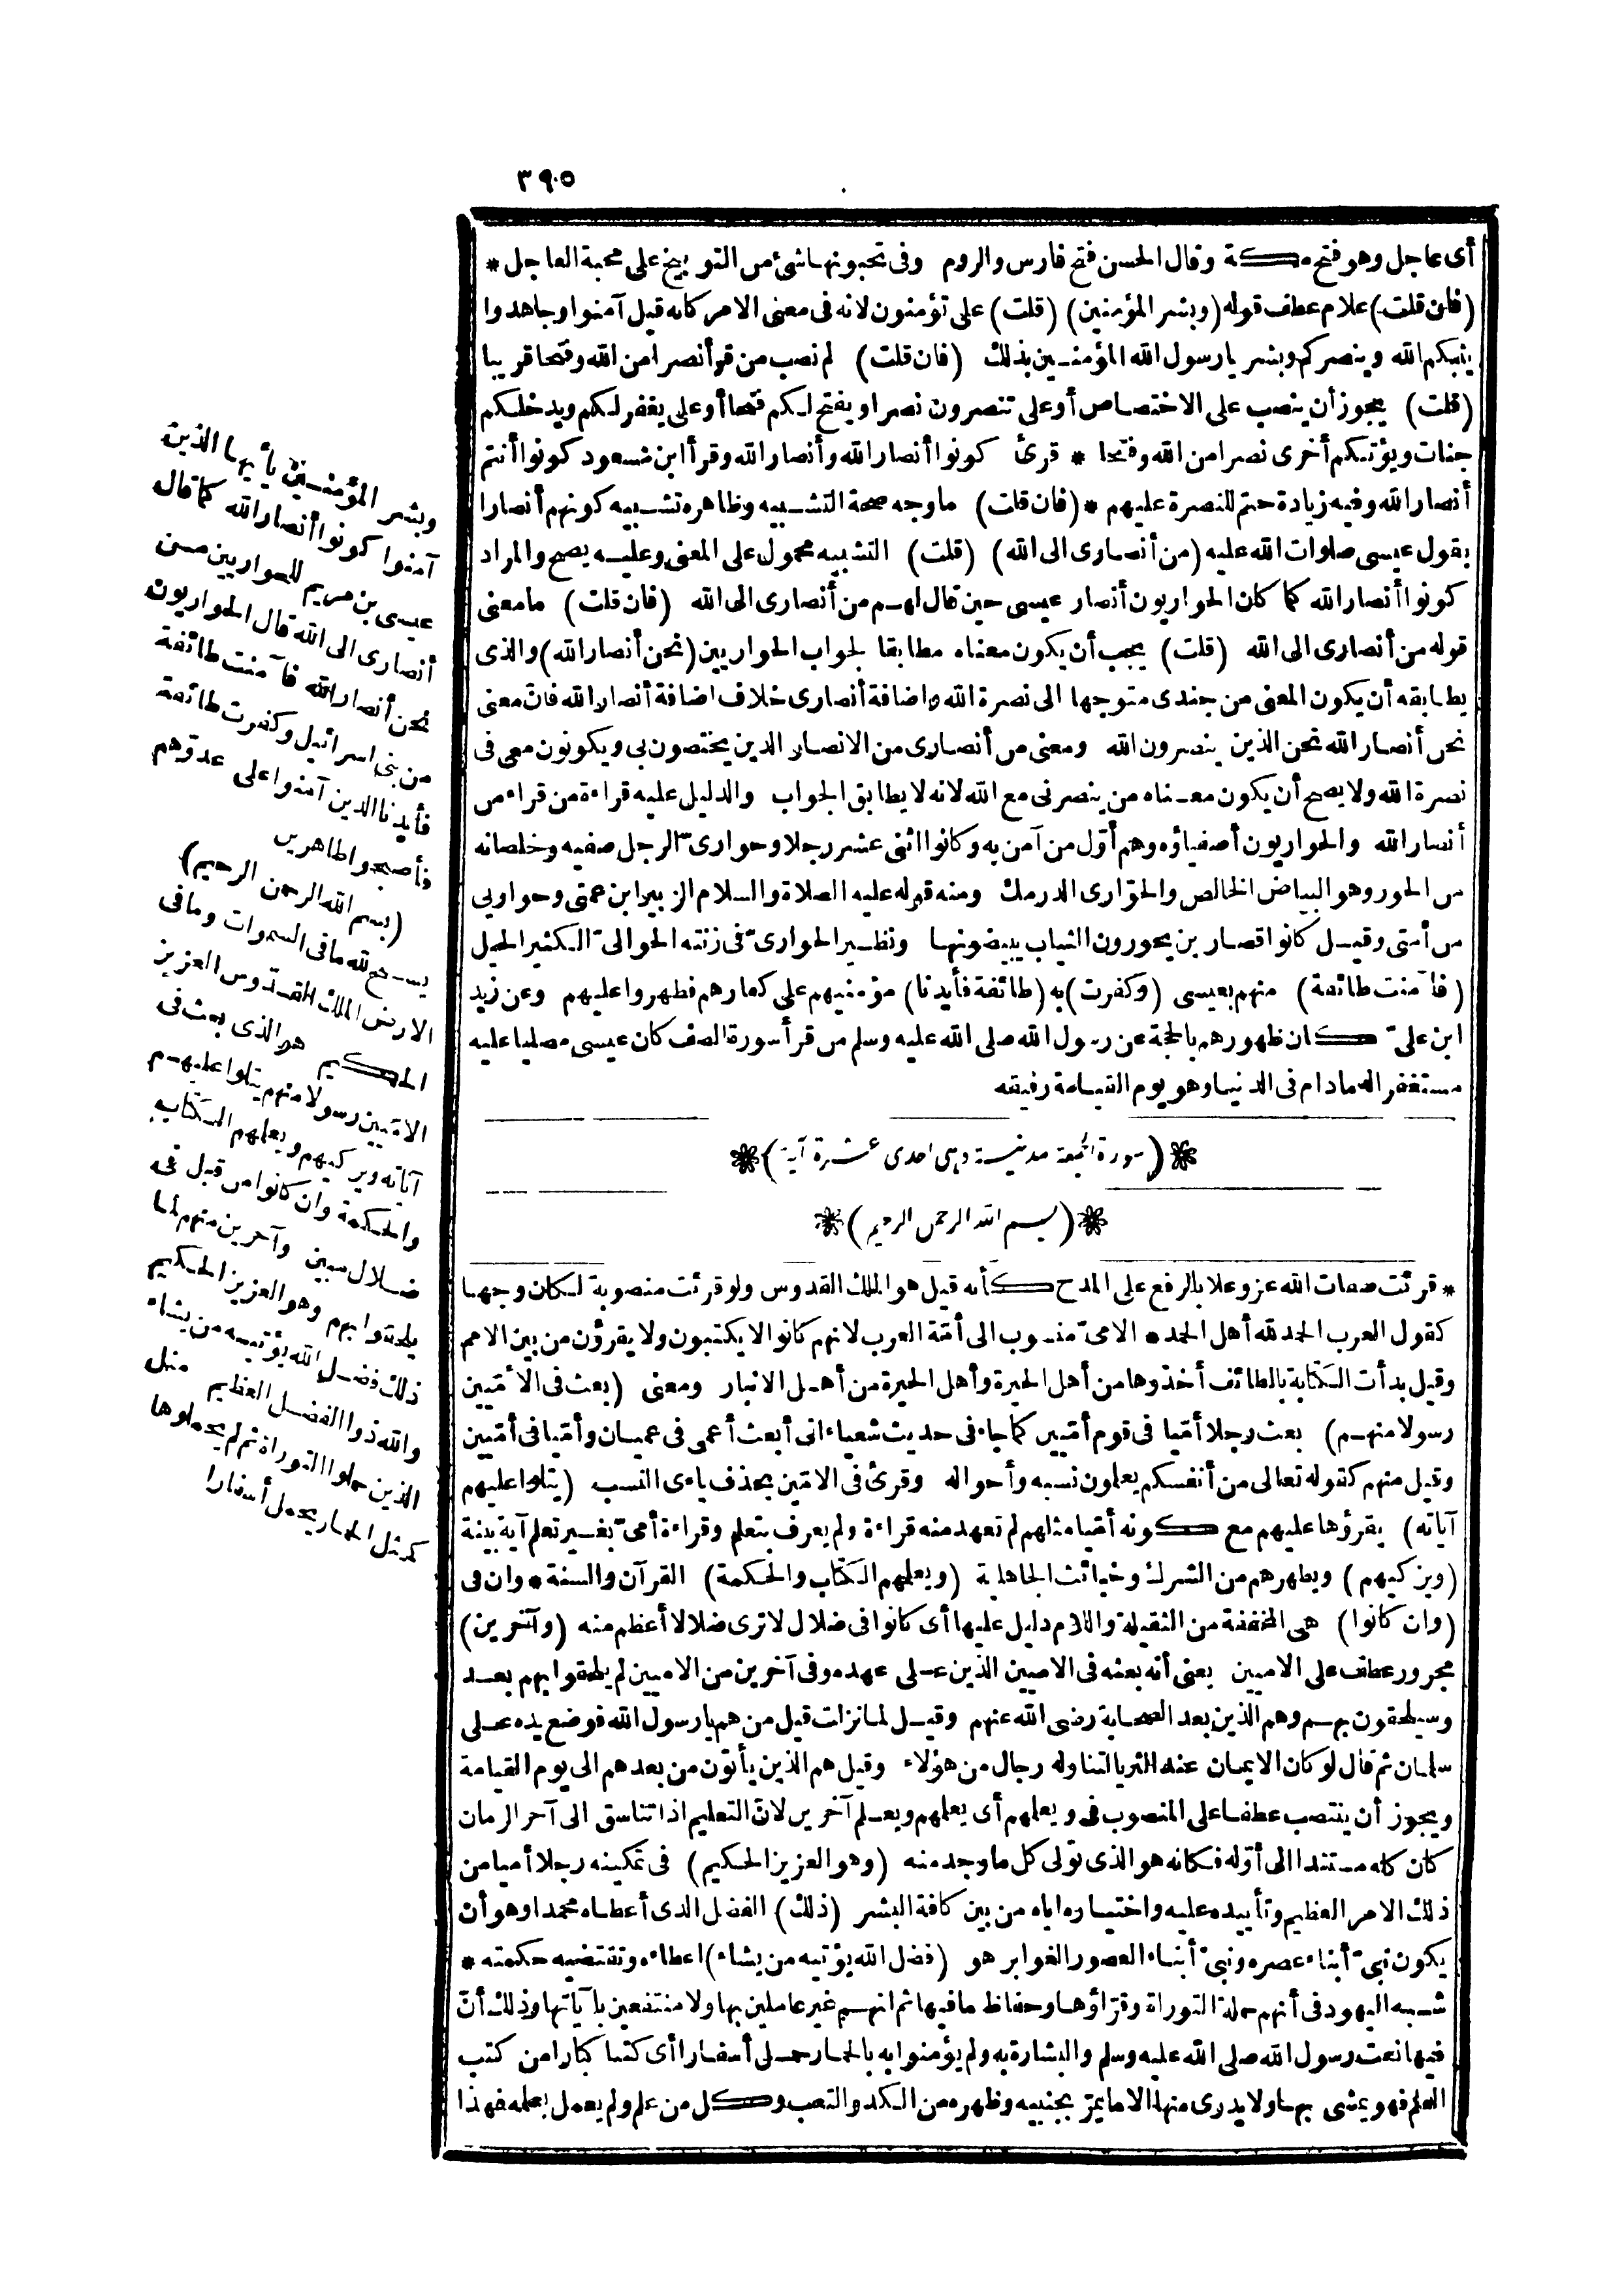 ٣٩٥
أى عاجل وهو فتح مكة وقال الحسن فتح فارس والروم وفى تحبونها شئ من التوبيخ على محبة العاجل *
(فان قلت) علام عطف قوله (وبشر المؤمنين) (قلت) على تؤمنون لانه فى معنى الامر كانه قيل آمنوا وجاهدوا
يثبكم الله وينصركم وبشر يا رسول الله المؤمنين بذلك (فان قلت) لم نصب من قرأ نصرا من الله وفتحا قريبا
(قلت) يجوز أن ينصب على الاختصاص أو على تنصرون نصرا ويفتح لكم فتحا أو على يغفر لكم ويدخلكم
جنات ويؤتكم أخرى نصرا من الله وفتحا * قرئ كونوا أنصار الله وأنصارا لله وقرأ ابن مسعود كونوا أنتم
أنصار الله وفيه زيادة حتم للنصرة عليهم * (فان قلت) ما وجه صحة التشبيه وظاهره تشبيه كونهم أنصارا
بقول عيسى صلوات الله عليه (من أنصارى الى الله) (قلت) التشبيه محمول على المعنى وعليه يصح والمراد
كونوا أنصار الله كما كان الحواريون أنصار عيسى حين قال لهم من أنصارى الى الله (فان قلت) ما معنى
قوله من أنصارى الى الله (قلت) يجب أن يكون معناه مطابقا لجواب الحواريين (نحن أنصار الله) والذى
يطابقه أن يكون المعنى من جندى متوجها الى نصرة الله واضافة أنصارى خلاف اضافة أنصار الله فانّ معنى
نحن أنصار الله نحن الذين ينصرون الله ومعنى من أنصارى من الانصار الذين يختصون بى ويكونون معى فى
نصرة الله ولا يصح أن يكون معناه من ينصرنى مع الله لانه لا يطابق الجواب والدليل عليه قراءة من قرا من
أنصار الله والحواريون أصفياؤه وهم أوّل من آمن به وكانوا اثنى عشر رجلا وحوارىّ الرجل صفيه وخلصانه
من الحور وهو البياض الخالص والحوّارى الدرمك ومنه قوله عليه الصلاة والسلام الزبير ابن عمتى وحواريى
من أمتى وقيل كانوا قصارين يحورون الثياب يبيضونها ونظير الحوارىّ فى زنته الحوالىّ الكثير الحيل
(فآمنت طائفة) منهم بعيسى (وكفرت) به (طائفة فأيدنا) مؤمنيهم على كفارهم فظهروا عليهم وعن زيد
ابن علىّ كان ظهورهم بالحجة عن رسول الله صلى الله عليه وسلم من قرأ سورة الصف كان عيسى مصليا عليه
مستغفرا له مادام فى الدنيا وهو يوم القيامة رفيقه
❋(سورة الجمعة مدنية وهى احدى عشرة آية)❋
❋(بسم الله الرحمن الرحيم)❋
* قرئت صفات الله عز وعلا بالرفع على المدح كأنه قيل هو الملك القدوس ولو قرئت منصوبة لكان وجها
كقول العرب الحمد لله أهل الحمد * الامىّ منسوب الى أمّة العرب لانهم كانوا لا يكتبون ولا يقرؤن من بين الامم
وقيل بدأت الكتابة بالطائف أخذوها من أهل الحيرة وأهل الحيرة من أهل الانبار ومعنى (بعث فى الأمّيين
رسولا منهم) بعث رجلا أمّيا فى قوم أمّيين كما جاء فى حديث شعياء انى أبعث أعمى فى عميان وأمّيا فى أمّيين
وقيل منهم كقوله تعالى من أنفسكم يعلمون نسبه وأحواله وقرئ فى الامّين بحذف ياءى النسب (يتلوا عليهم
آياته) يقرؤها عليهم مع كونه أمّيا مثلهم لم تعهد منه قراءة ولم يعرف بتعلم وقراءة أمىّ بغير تعلم آية بينة
(ويزكيهم) ويطهرهم من الشرك وخبائث الجاهلية (ويعلمهم الكتاب والحكمة) القرآن والسنة * وان فى
(وان كانوا) هى المخففة من الثقيلة واللام دليل عليها أى كانوا فى ضلال لا ترى ضلالا أعظم منه (وآخرين)
مجرور عطف على الاميين يعنى أنه بعثه فى الاميين الذين على عهده وفى آخرين من الاميين لم يلحقوا بهم بعد
وسيلحقون بهم وهم الذين بعد الصحابة رضى الله عنهم وقيل لما نزلت قيل من هم يا رسول الله فوضع يده على
سلمان ثم قال لو كان الايمان عند الثريا لتناوله رجال من هؤلاء وقيل هم الذين يأتون من بعدهم الى يوم القيامة
ويجوز أن ينتصب عطفا على المنصوب فى ويعلمهم أى يعلمهم ويعلم آخرين لانّ التعليم اذا تناسق الى آخر الزمان
كان كله مستندا الى أوّله فكانه هو الذى تولى كل ما وجد منه (وهو العزيز الحكيم) فى تمكينه رجلا أميا من
ذلك الامر العظيم وتأييده عليه واختياره اياه من بين كافة البشر (ذلك) الفضل الذى أعطاه محمدا وهو أن
يكون نبىّ أبناء عصره ونبىّ أبناء العصور الغوابر هو (فضل الله يؤتيه من يشاء) اعطاءه وتقتضيه حكمته *
شبه اليهود فى أنهم حملة التوراة وقرّاؤها وحفاظ ما فيها ثم انهم غير عاملين بها ولا منتفعين بآياتها وذلك أنّ
فيها نعت رسول الله صلى الله عليه وسلم والبشارة به ولم يؤمنوا به بالحمار حمل أسفارا أى كتبا كبارا من كتب
العلم فهو يمشى بها ولا يدرى منها الا ما يمرّ بجنبيه وظهره من الكد والتعب وكل من علم ولم يعمل بعلمه فهذا
وبشر المؤمنين يأيها الذين
آمنوا كونوا أنصار الله كما قال
عيسى بن مريم للحواريين من
أنصارى الى الله قال الحواريون
نحن أنصار الله فآمنت طائفة
من بنى اسرائيل وكفرت طائفة
فأيدنا الذين آمنوا على عدوّهم
فأصبحوا ظاهرين
(بسم الله الرحمن الرحيم)
يسبح لله ما فى السموات وما فى
الارض الملك القدّوس العزيز
الحكيم هو الذى بعث فى
الامّيين رسولا منهم يتلوا عليهم
آياته ويزكيهم ويعلمهم الكتاب
والحكمة وان كانوا من قبل لفى
ضلال مبين وآخرين منهم لما
يلحقوا بهم وهو العزيز الحكيم
ذلك فضل الله يؤتيه من يشاء
والله ذوا الفضل العظيم مثل
الذين حملوا التوراة ثم لم يحملوها
كمثل الحمار يحمل أسفارا